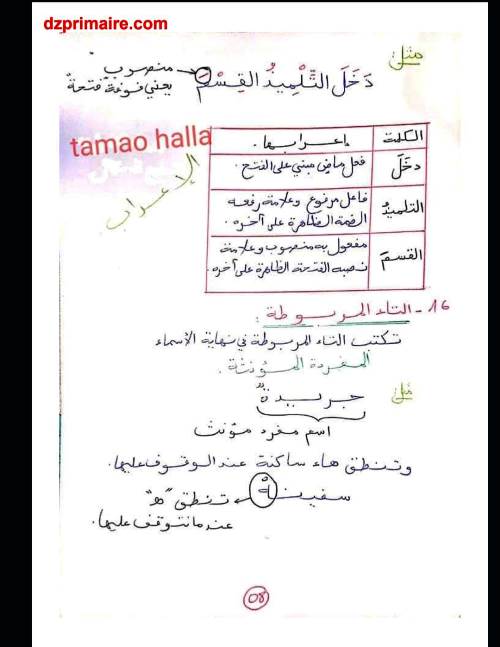 dzprimaire.com
مثل:
منصوب
يعني فوقه فتحة
دَخَلَ التِّلْمِيذُ القِسْمَ
tamao halla
الإعراب
الكلمة إعرابها.
دخَلَ فعل ماض مبني على الفتح.
التلميذُ فاعل مرفوع وعلامة رفعه
الضمة الظاهرة على آخره.
القسمَ مفعول به منصوب وعلامة
نصبه الفتحة الظاهرة على آخره.
16 - التاء المربوطة:
تكتب التاء المربوطة في نهاية الأسماء
المفردة المؤنثة.
مثل: جريدةٌ
اسم مفرد مؤنث
وتنطق هاء ساكنة عند الوقوف عليها.
سفينةْ تنطق "هْ"
عندما نتوقف عليها.
08